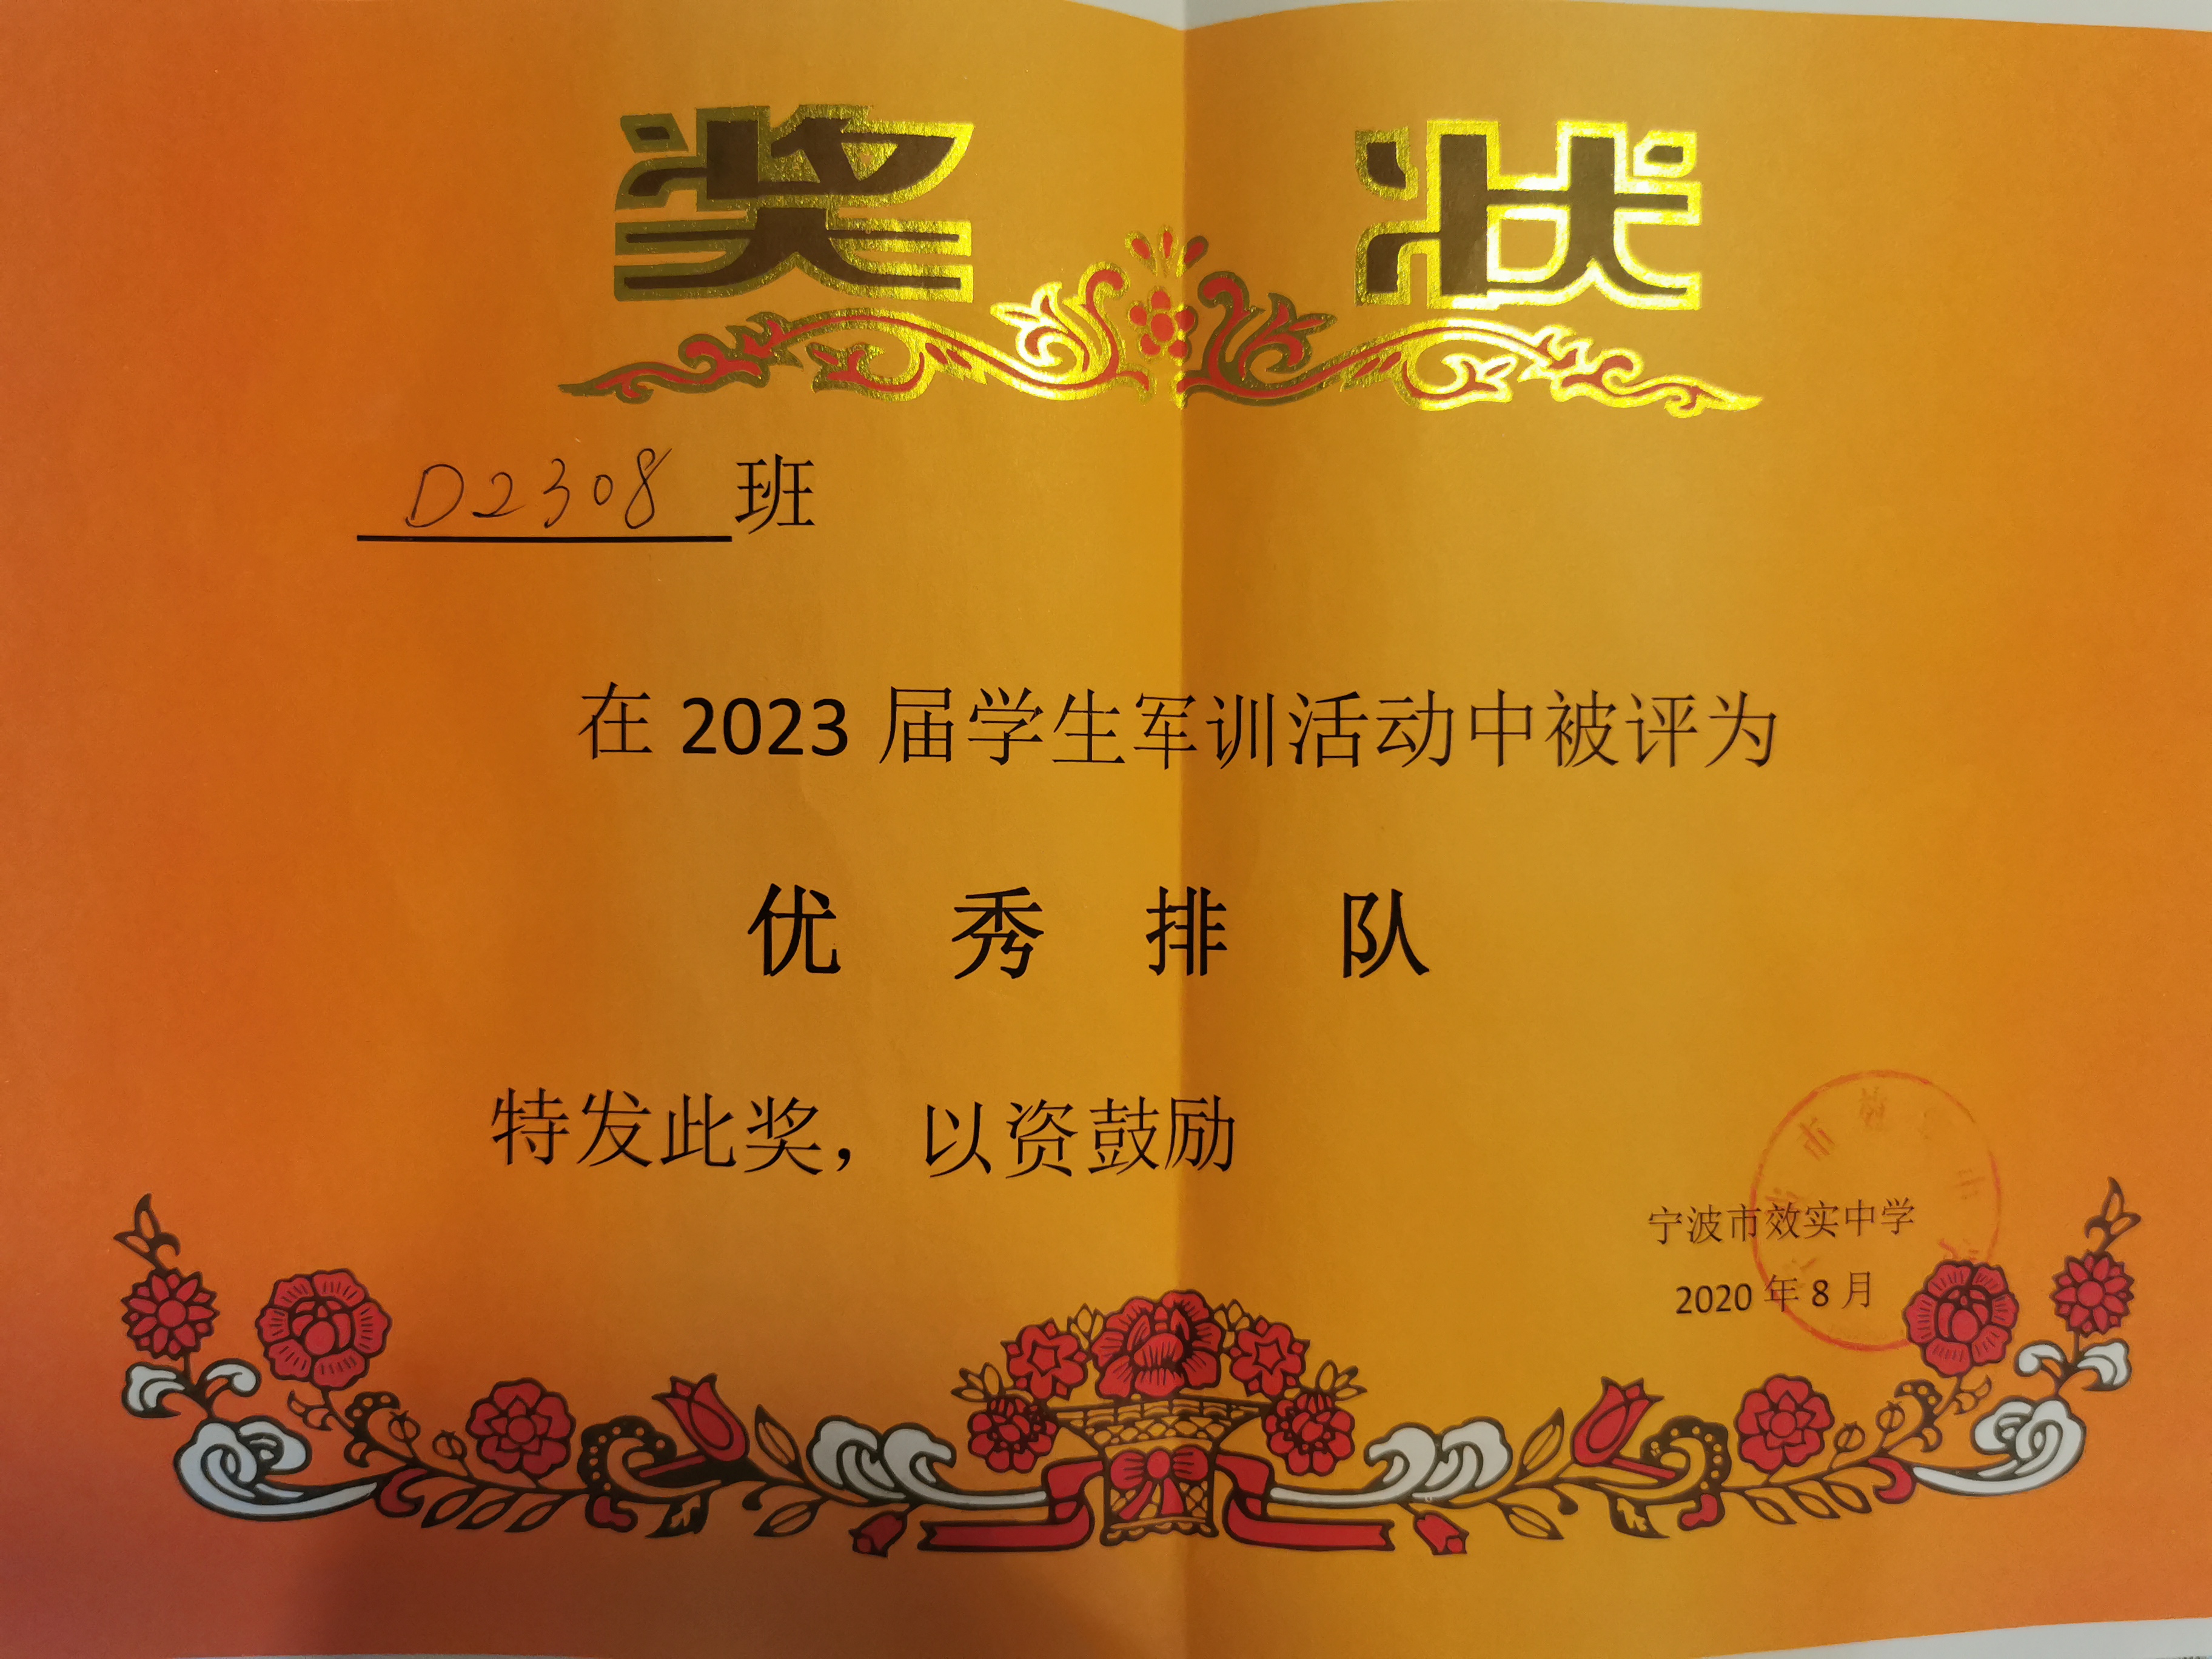 奖状
D2308班
在2023届学生军训活动中被评为
优秀排队
特发此奖，以资鼓励
宁波市效实中学
2020年8月